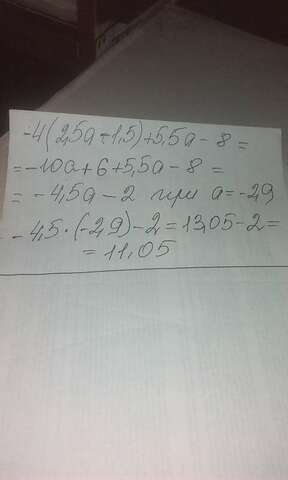 -4(2,5a-1,5)+5,5a-8=
=-10a+6+5,5a-8=
=-4,5a-2 при a=-2,9
-4,5·(-2,9)-2=13,05-2=
=11,05